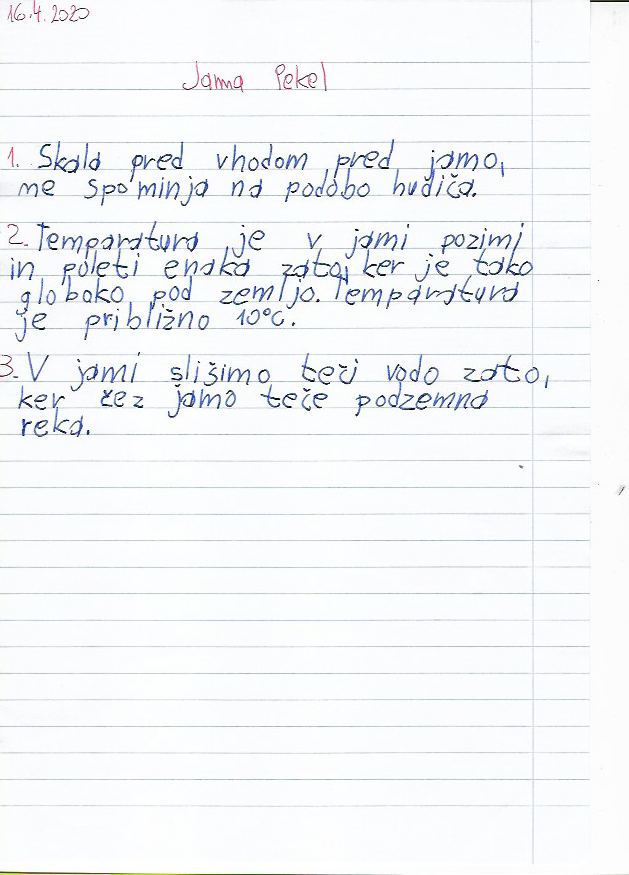 16.4.2020
Jama Pekel
1. Skala pred vhodom pred jamo,
me spominja na podobo hudiča.
2. Temparatura je v jami pozimi
in poleti enaka zato, ker je tako
globoko pod zemljo. Temparatura
je približno 10°C.
3. V jami slišimo teči vodo zato,
ker čez jamo teče podzemna
reka.